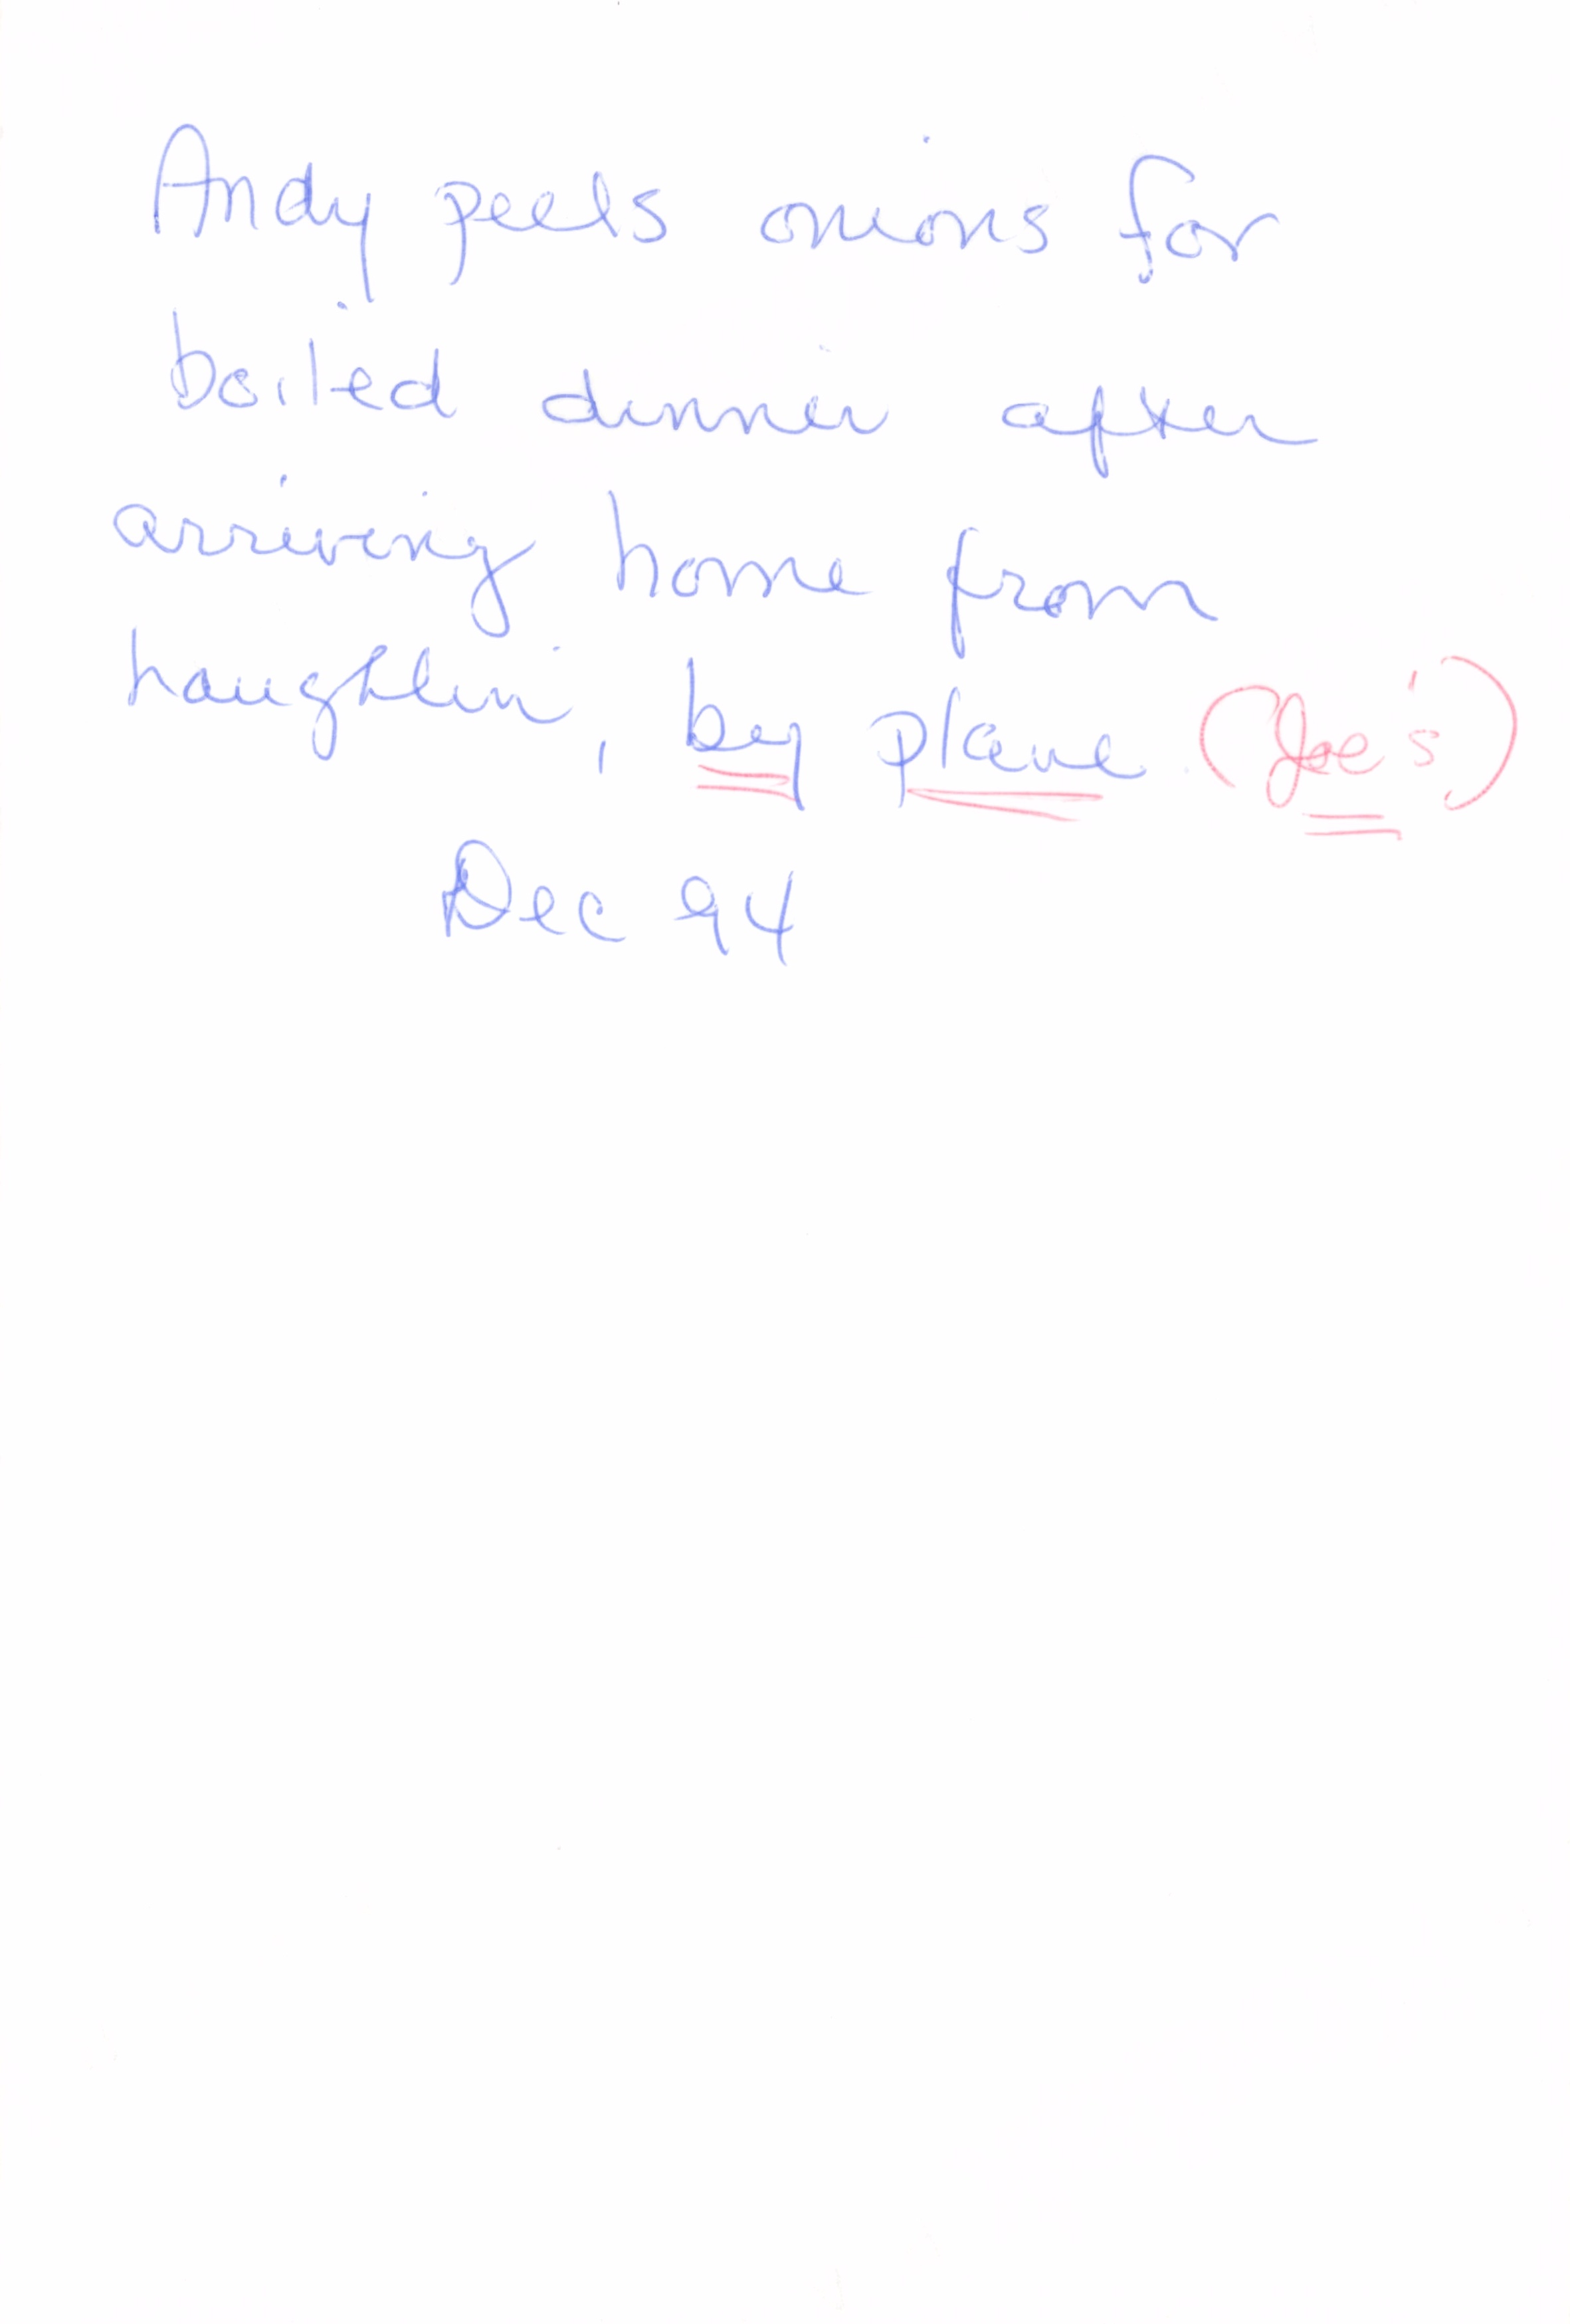 Andy peels onions for
boiled dinner after
arriving home from
by plane. (Joe's)
Dec 94